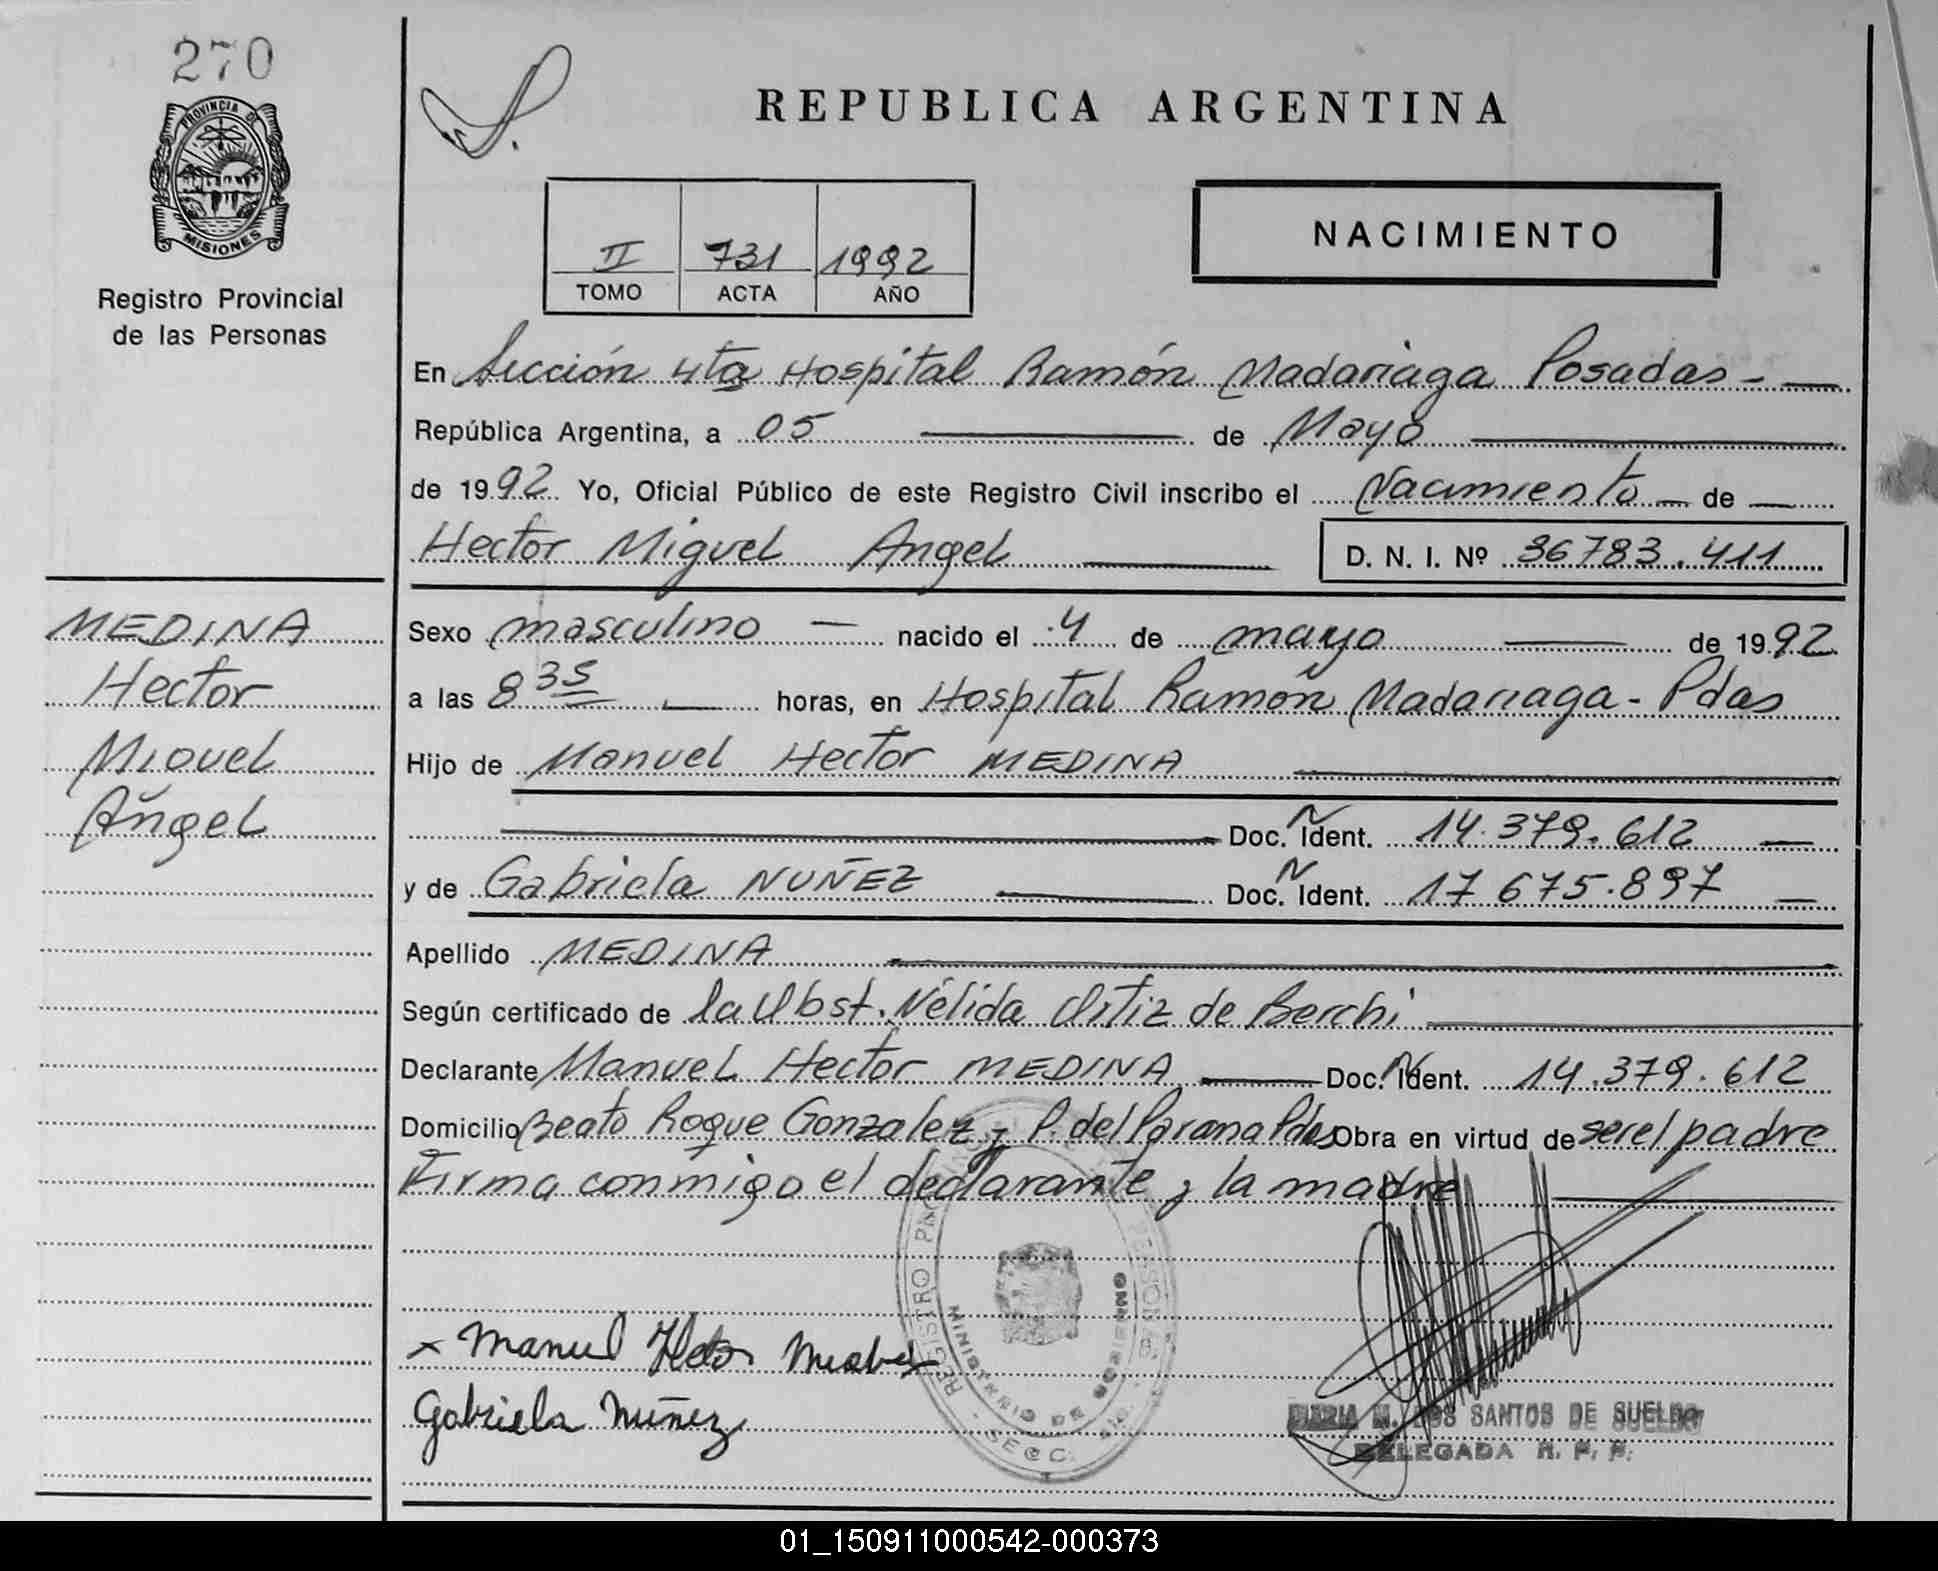 270
PROVINCIA DE
MISIONES
Registro Provincial
de las Personas
MEDINA
Hector
Miguel
Angel
REPUBLICA ARGENTINA
II 731 1992
TOMO ACTA AÑO
NACIMIENTO
En Sección 4ta Hospital Ramón Madariaga Posadas -
República Argentina, a 05 de Mayo
de 1992 Yo, Oficial Público de este Registro Civil inscribo el Nacimiento de
Hector Miguel Angel D. N. I. Nº 36783.411
Sexo masculino nacido el 4 de mayo de 1992
a las 8 35 horas, en Hospital Ramón Madariaga - Pdas
Hijo de Manuel Hector MEDINA
Doc. N Ident. 14.379.612
y de Gabriela NUÑEZ Doc. N Ident. 17 675.897
Apellido MEDINA
Según certificado de la Obst. Nélida Ortiz de Berchi
Declarante Manuel Hector MEDINA Doc. N Ident. 14.379.612
Domicilio Beato Roque Gonzalez y P. del Parana Pdas Obra en virtud de ser el padre
Firma conmigo el declarante y la madre
REGISTRO PROVINCIAL DE LAS PERSONAS
MINISTERIO DE GOBIERNO
x Manuel Hector
Gabriela Nuñez
MARIA M. DOS SANTOS DE SUELDO
DELEGADA R. P. P.
01_150911000542-000373